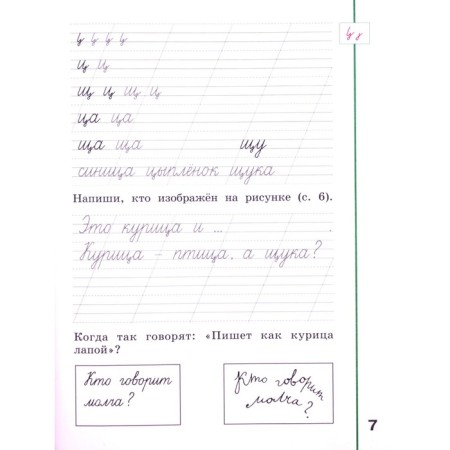 ц ц ц ц
ц у
ц ц
щ ц щ ц
ца ца
ща ща щу
синица цыплёнок щука
Напиши, кто изображён на рисунке (с. 6).
Это курица и ...
Курица – птица, а щука?
Когда так говорят: «Пишет как курица
лапой»?
Кто говорит
молча?
Кто говорит
молча?
7